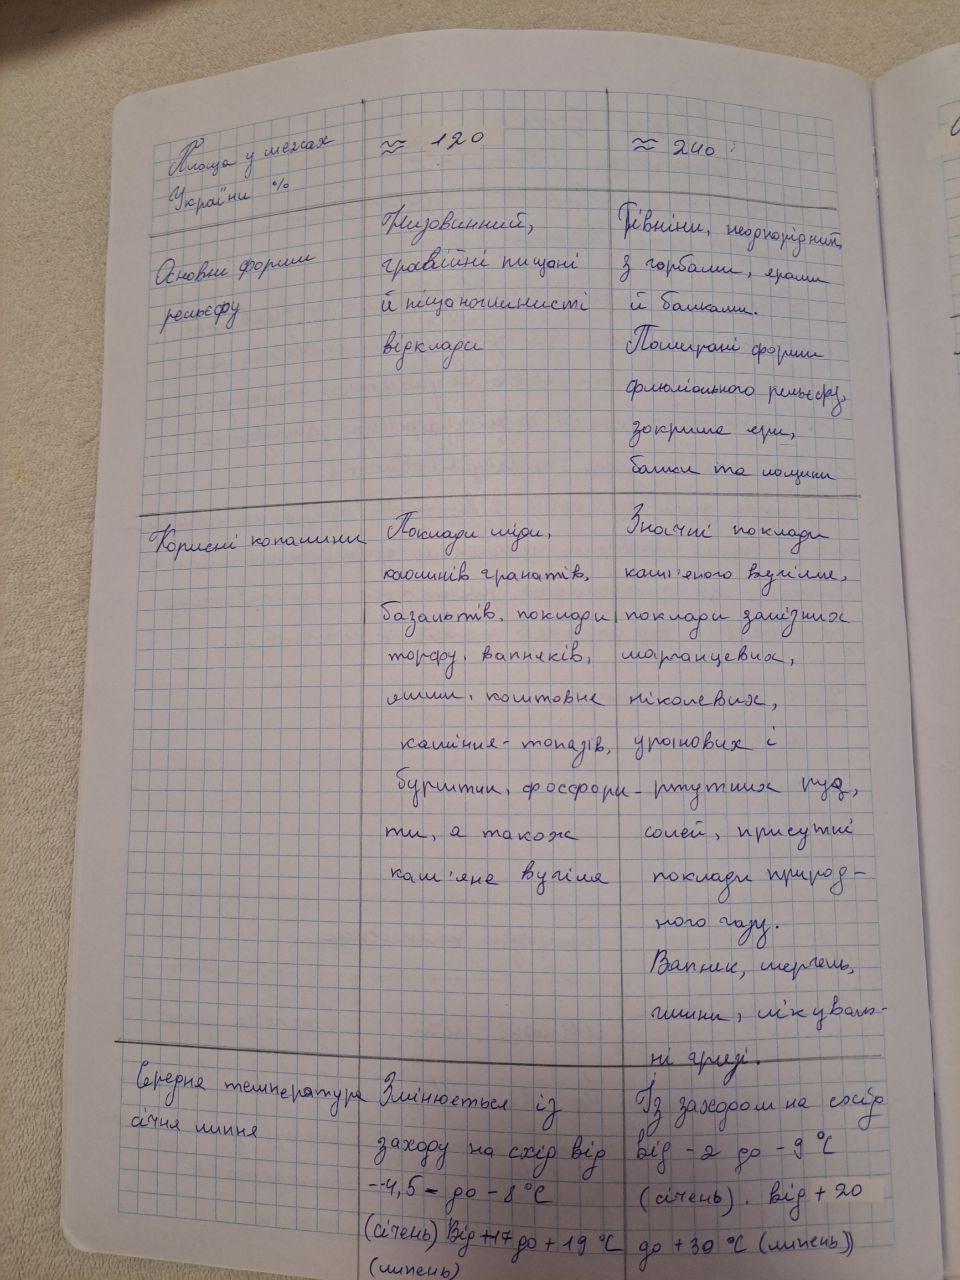 Площа у межах
України %
≈ 120
≈ 240
Основні форми
рельєфу
Низовинний,
гравійні пищані
й піщаноглинисті
відклади
Рівніни, неоднорідний,
з горбами, ярами
й балками.
Поширені форми
флюліального рельєфу,
зокрима яри,
балки та лощини
Корисні копалини
Поклади міди,
каолинів гранатів,
базальтів, поклади
торфу, вапняків,
яшми, коштовне
каміння - топазів,
бурштин, фосфори-
ти, а також
кам'яне вугіля
Значні поклади
кам'яного вугілля,
поклади залізних
марганцевих,
ніколевих,
уранових і
ртутних руд,
солей, присутні
поклади природ-
ного газу.
Вапняк, мергель,
глини, лікуваль-
ні грязі.
Середня температура
січня липня
Змінюється із
заходу на схід від
-4,5- до -8°C
(січень) Від +17 до +19°C
(липень)
Із заходом на схір
від -2 до -9°C
(січень). від +20
до +30°C (липень))